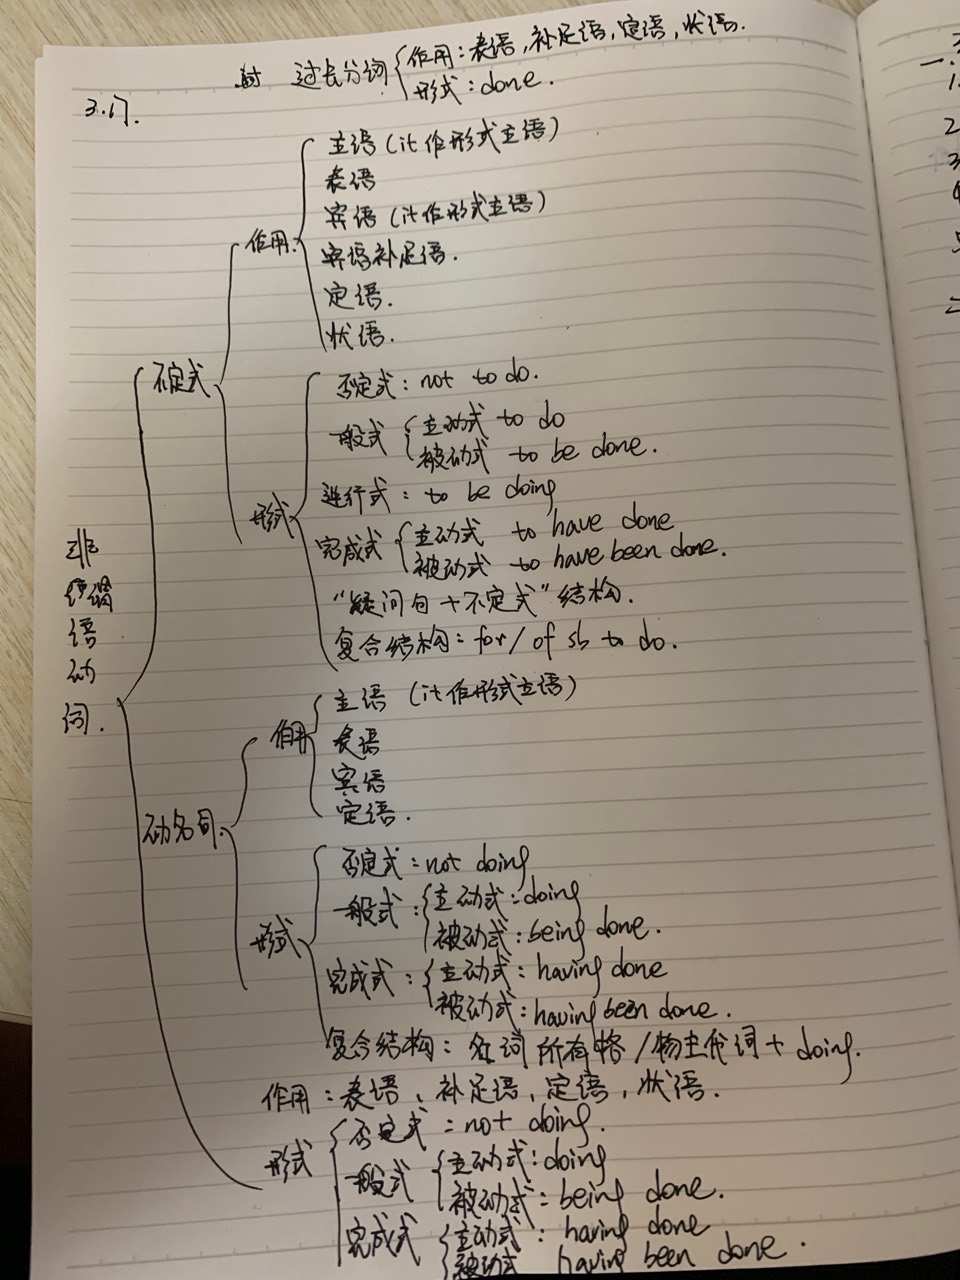 过去分词 作用：表语，补足语，定语，状语.
形式：done.
3.17.
主语（it作形式主语）
表语
宾语（it作形式主语）
作用.
宾语补足语.
定语.
状语.
不定式
否定式：not to do.
一般式 主动式 to do
被动式 to be done.
进行式：to be doing
形式
完成式 主动式 to have done
被动式 to have been done.
“疑问句+不定式”结构.
复合结构：for/of sb to do.
非谓语动词.
主语（it作形式主语）
作用
表语
宾语
定语.
动名词.
否定式：not doing
一般式：主动式：doing
被动式：being done.
形式
完成式：主动式：having done
被动式：having been done.
复合结构：名词所有格/物主代词+doing.
作用：表语、补足语、定语，状语.
形式 否定式：not doing.
一般式 主动式：doing
被动式：being done.
完成式 主动式：having done
被动式 having been done.